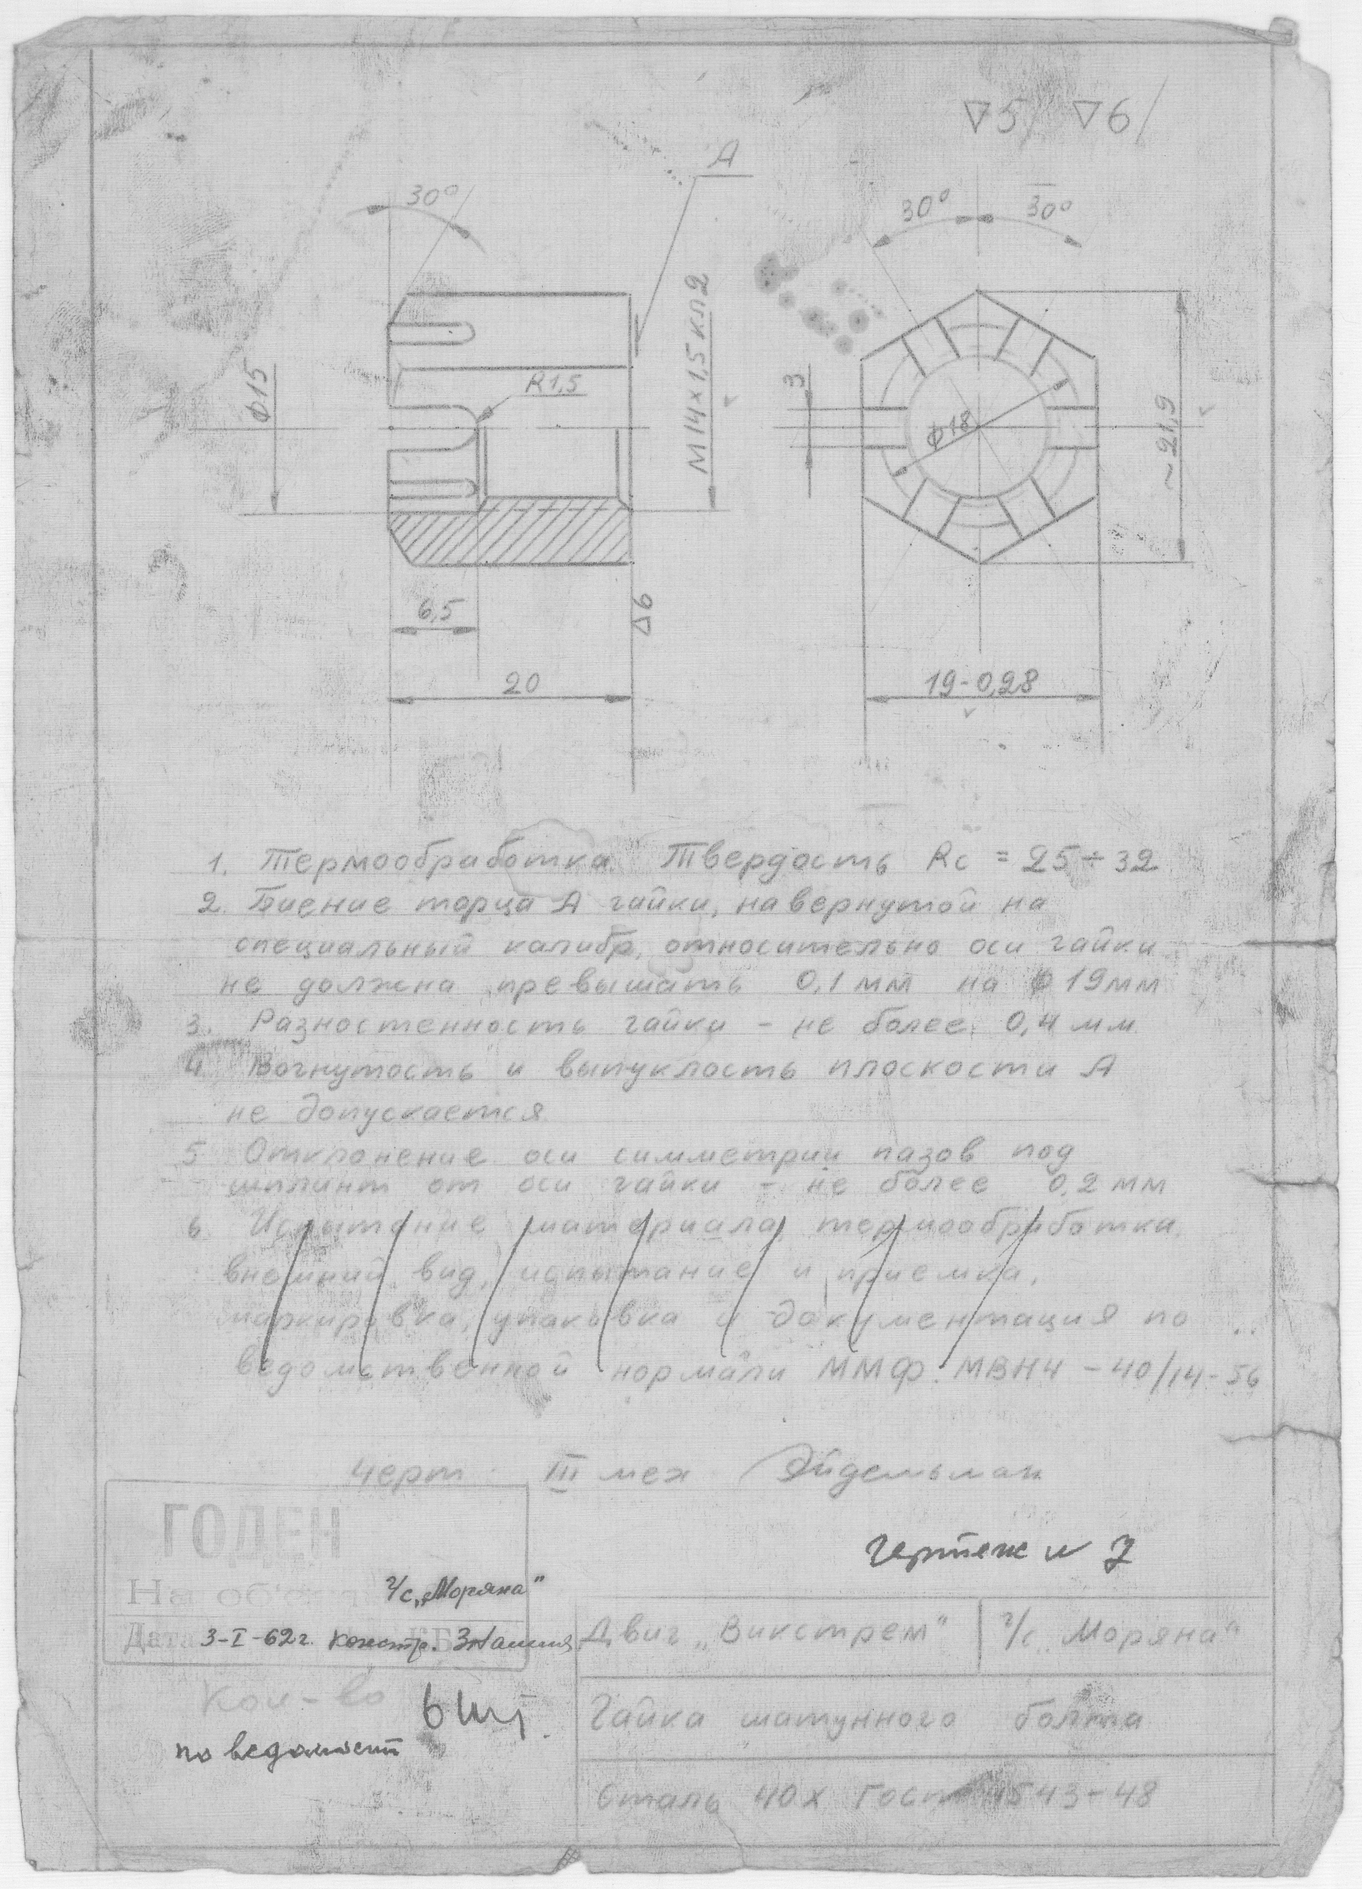 ▽5/ ▽6/
A
30°
30° 30°
М14×1,5 кл 2
ϕ15
R1,5
3
ϕ18
~21,9
6,5
▽6
20
19-0,28
1. Термообработка. Твердость Rc = 25÷32
2. Биение торца А гайки, навернутой на
специальный калибр, относительно оси гайки
не должна превышать 0,1 мм на ϕ19мм
3. Разностенность гайки – не более 0,4 мм.
4. Вогнутость и выпуклость плоскости А
не допускается.
5 Отклонение оси симметрии пазов под
шплинт от оси гайки – не более 0,2 мм
6 Испытание материала, термообработки,
внешний вид, испытание и приемка,
маркировка, упаковка и документация по
ведомственной нормали ММФ. МВН4 –40/14-56
Черт. III мех Эйдельман
ГОДЕН
Чертеж N 7
На
г/с „Моряна"
Дата 3-I-62г. констр.
Двиг „Викстрем" г/с „Моряна"
Кол-во 6 шт.
Гайка шатунного болта
по ведомости
Сталь 40х Гост 4543-48